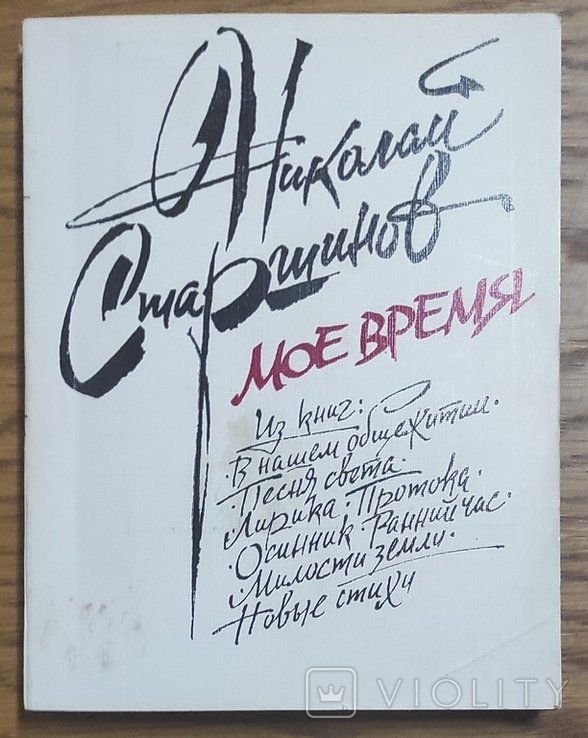 Николай
Старшинов
МОЕ ВРЕМЯ
Из книг:
·В нашем общежитии·
·Песня света·
·Лирика·Протока·
·Осинник·Ранний час·
·Милости земли·
Новые стихи
VIOLITY